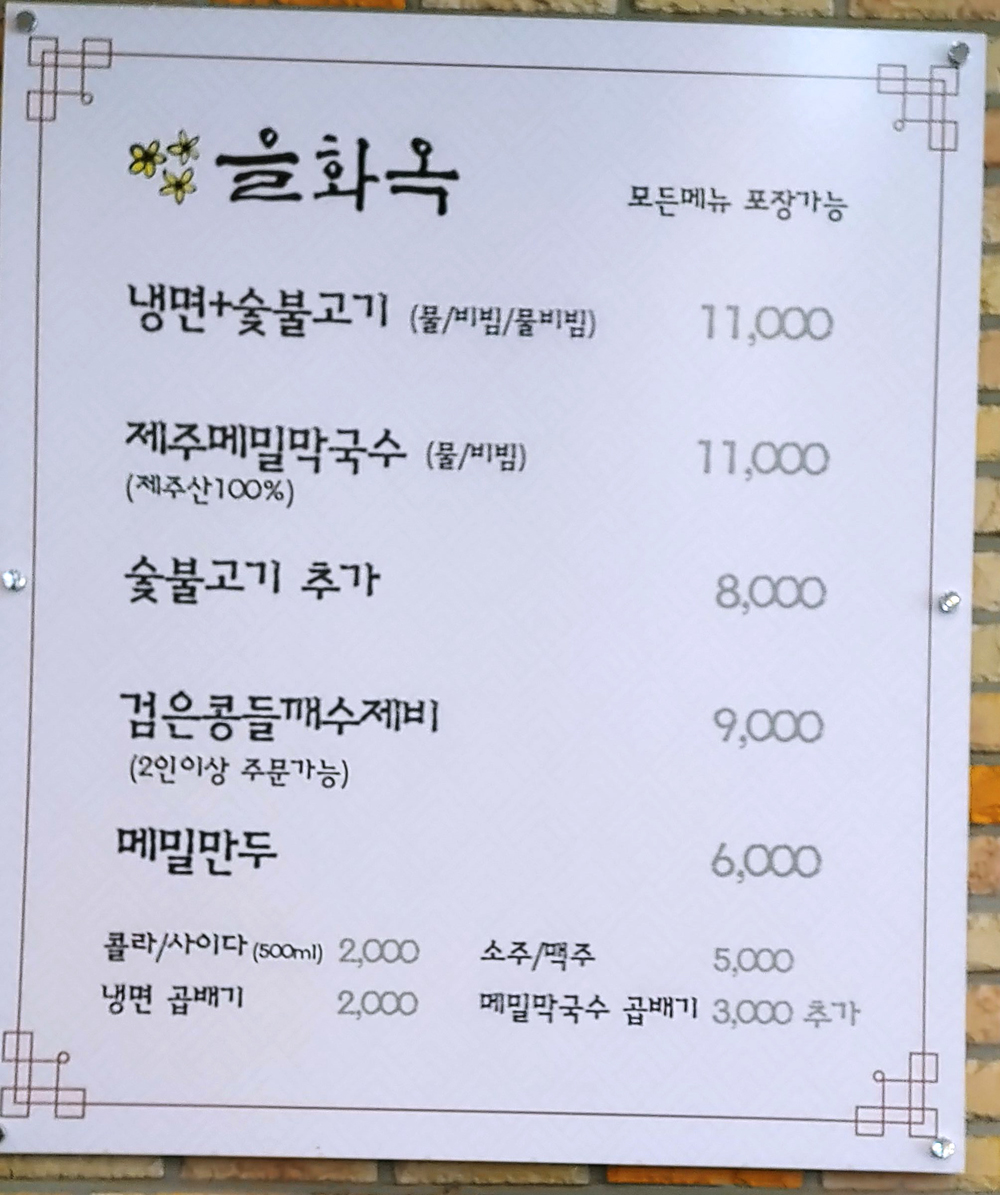 을화옥
모든메뉴 포장가능
냉면+숯불고기 (물/비빔/물비빔) 11,000
제주메밀막국수 (물/비빔) 11,000
(제주산100%)
숯불고기 추가 8,000
검은콩들깨수제비 9,000
(2인이상 주문가능)
메밀만두 6,000
콜라/사이다(500ml) 2,000 소주/맥주 5,000
냉면 곱배기 2,000 메밀막국수 곱배기 3,000 추가